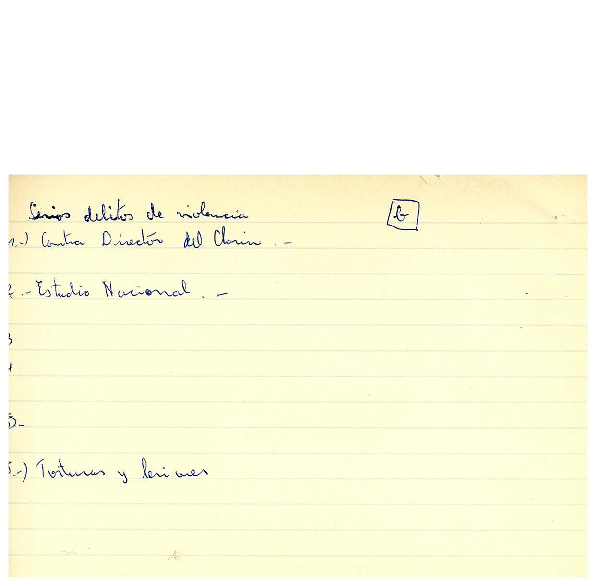 Serios delitos de violencia
G
1.-) Contra Director del Clarin.-
2.- Estadio Nacional.-
3
4
5-
5.-) Torturas y lesiones